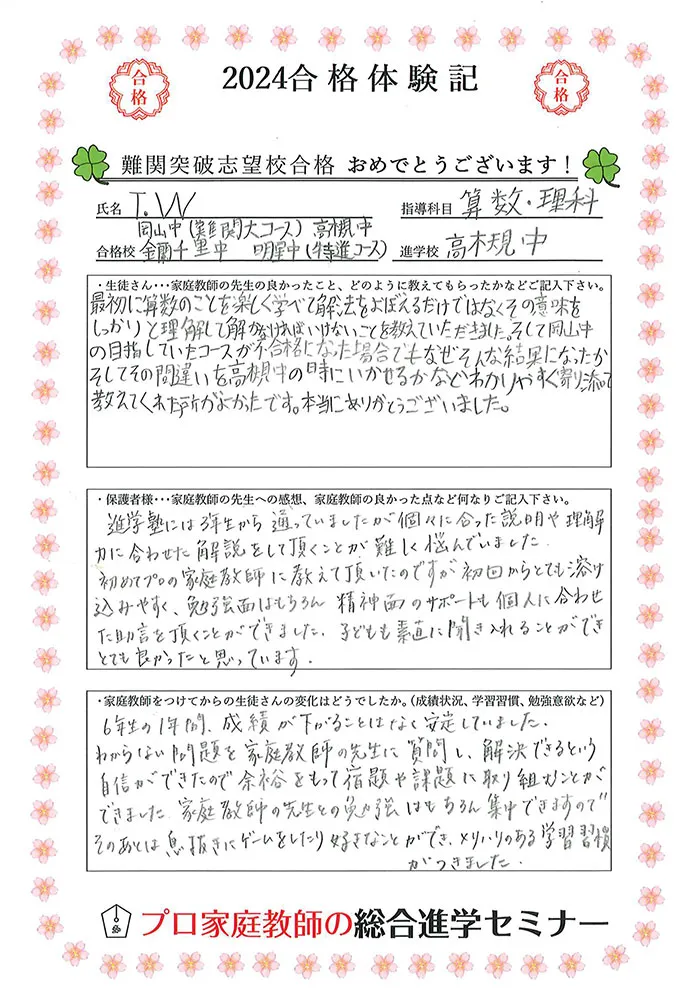 合格
2024合格体験記
合格
難関突破志望校合格 おめでとうございます！
氏名 T.W 指導科目 算数・理科
岡山中(難関大コース) 高槻中
合格校 金蘭千里中 明星中(特進コース) 進学校 高槻中
・生徒さん･･･家庭教師の先生の良かったこと、どのように教えてもらったかなどご記入下さい。
最初に算数のことを楽しく学べて解法をよぼえるだけではなくその意味を
しっかりと理解して解かなければいけないことを教えていただきました。そして岡山中
の目指していたコースが不合格になった場合でもなぜそんな結果になったか
そしてその間違いを高槻中の時にいかせるかなどわかりやすく寄り添って
教えてくれた所がよかったです。本当にありがとうございました。
・保護者様･･･家庭教師の先生への感想、家庭教師の良かった点など何なりご記入下さい。
進学塾には3年生から通っていましたが個々に合った説明や理解
力に合わせた解説をして頂くことが難しく悩んでいました.
初めてプロの家庭教師に教えて頂いたのですが初回からとても溶け
込みやすく、勉強面はもちろん 精神面のサポートも個人に合わせ
た助言を頂くことができました. 子どもも素直に聞き入れることができ
とても良かったと思っています.
・家庭教師をつけてからの生徒さんの変化はどうでしたか。(成績状況、学習習慣、勉強意欲など)
6年生の1年間、成績が下がることはなく安定していました.
わからない問題を家庭教師の先生に質問し、解決できるという
自信ができたので余裕をもって宿題や課題に取り組むことが
できました. 家庭教師の先生との勉強はもちろん集中できますので
そのあとは息抜きにゲームをしたり好きなことができ、メリハリのある学習習慣
がつきました.
プロ家庭教師の総合進学セミナー